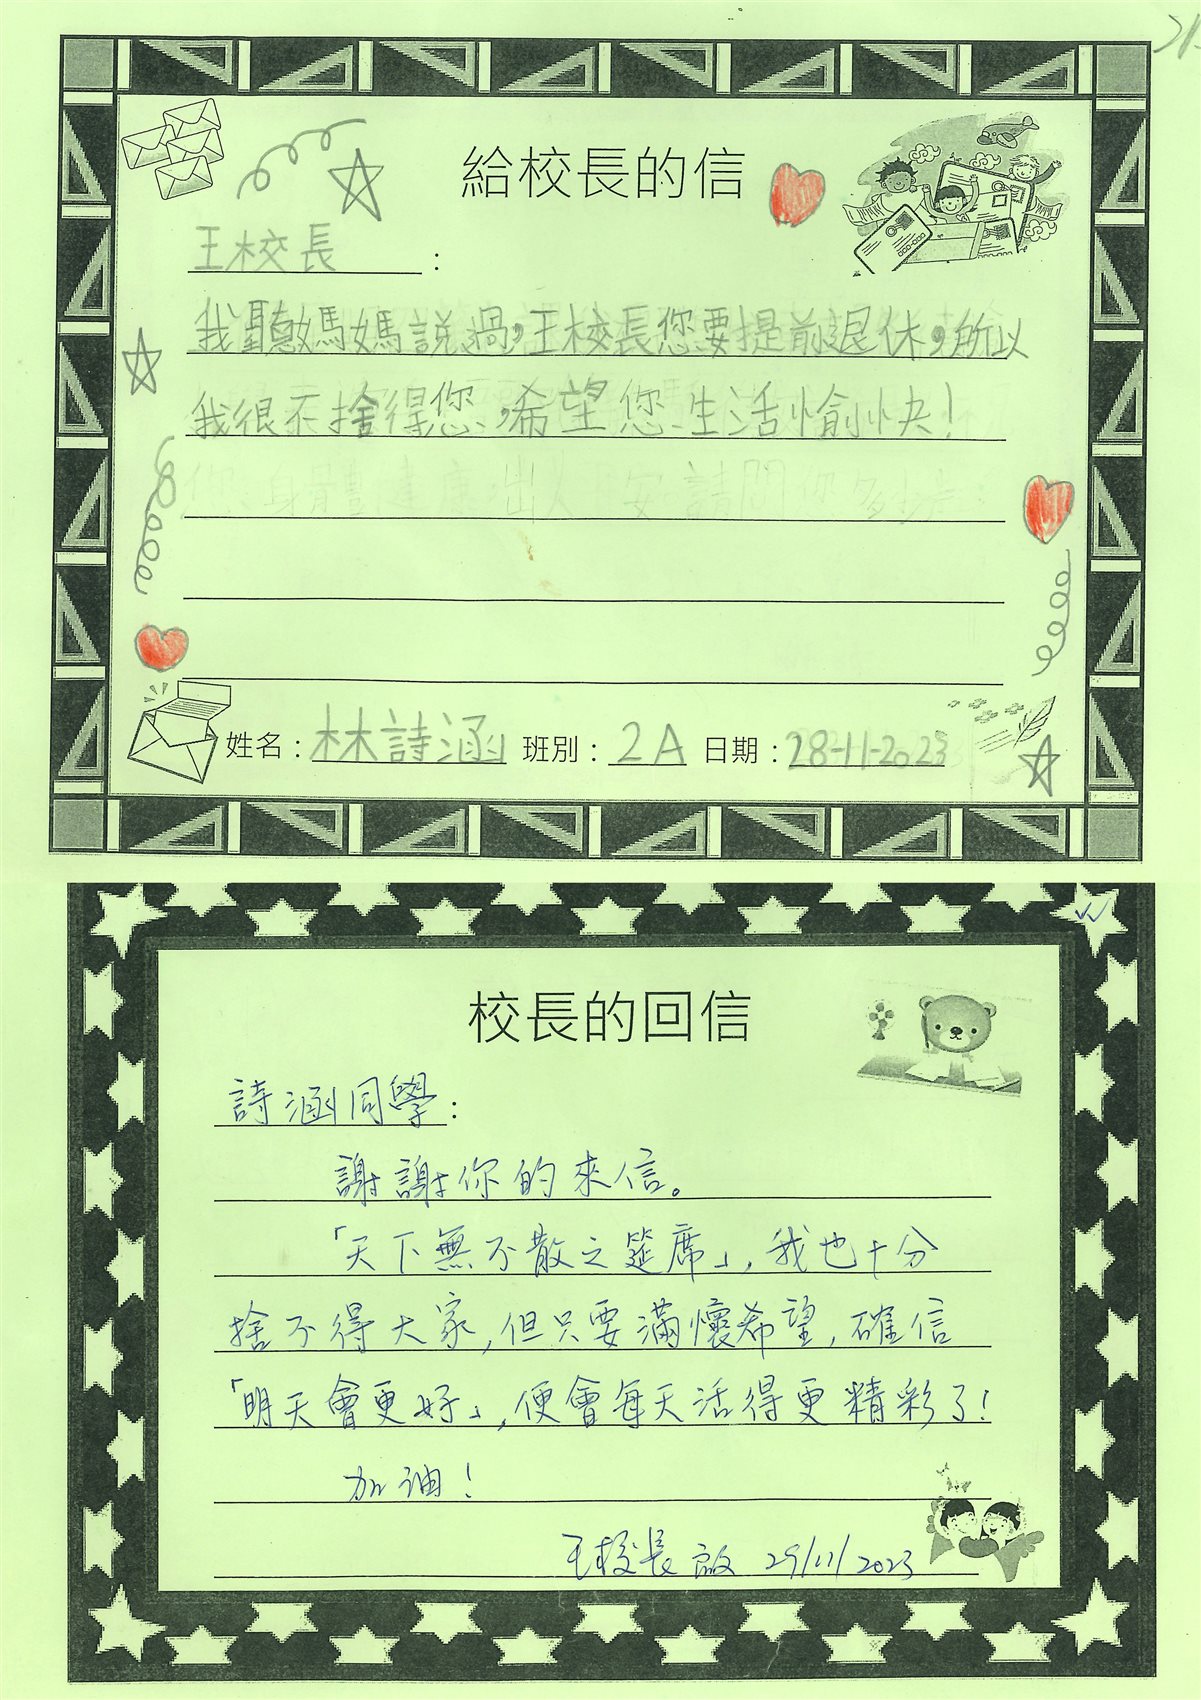 給校長的信
王校長：
我聽媽媽說過，王校長您要提前退休，所以
我很不捨得您，希望您生活愉快！
姓名：林詩涵 班別：2A 日期：28-11-2023
校長的回信
詩涵同學：
謝謝你的來信。
「天下無不散之筵席」，我也十分
捨不得大家，但只要滿懷希望，確信
「明天會更好」，便會每天活得更精彩了！
加油！
王校長啟 29/11/2023